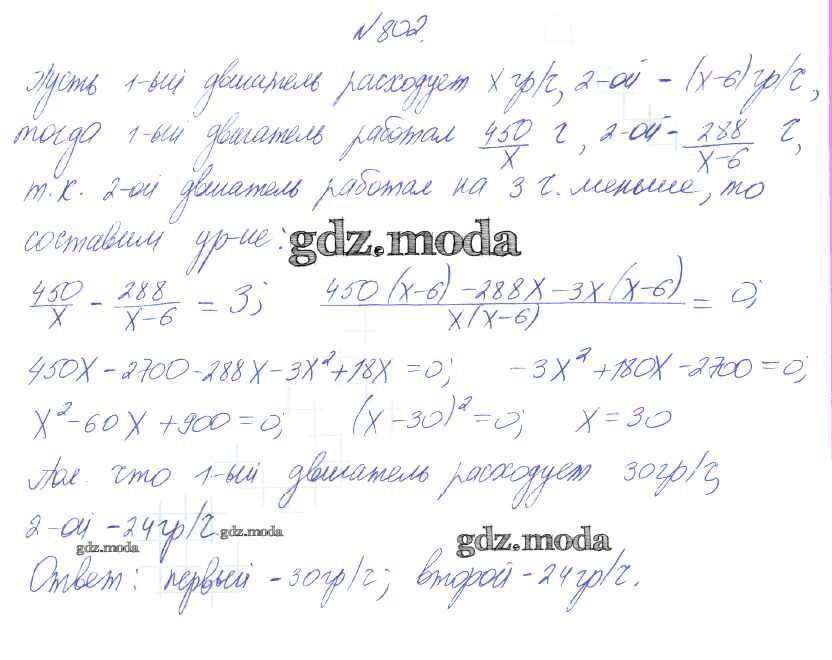 №802.
Пусть 1-ый двигатель расходует x гр/ч, 2-ой - (x-6) гр/ч,
тогда 1-ый двигатель работал 450/x ч, 2-ой - 288/(x-6) ч,
т.к. 2-ой двигатель работал на 3 ч. меньше, то
составим ур-ие: gdz.moda
450/x - 288/(x-6) = 3; (450(x-6) - 288x - 3x(x-6))/(x(x-6)) = 0;
450x - 2700 - 288x - 3x² + 18x = 0; -3x² + 180x - 2700 = 0;
x² - 60x + 900 = 0; (x - 30)² = 0; x = 30
Пол. что 1-ый двигатель расходует 30гр/ч,
2-ой - 24гр/ч. gdz.moda
gdz.moda gdz.moda
Ответ: первый - 30гр/ч; второй - 24гр/ч.